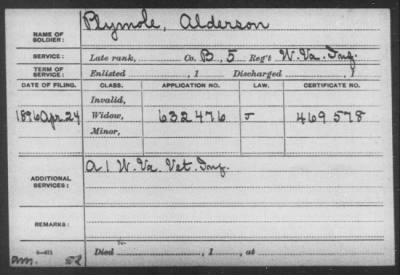 NAME OF SOLDIER: Plymole, Alderson
SERVICE: Late rank, Co. B, 5 Reg't W. Va. Inf.
TERM OF SERVICE: Enlisted , 1 Discharged , 1
DATE OF FILING. CLASS. APPLICATION NO. LAW. CERTIFICATE NO.
Invalid,
1896 Apr. 24 Widow, 632476 J 469578
Minor,
ADDITIONAL SERVICES: A 1 W. Va. Vet. Inf.
REMARKS:
Died , 1 , at